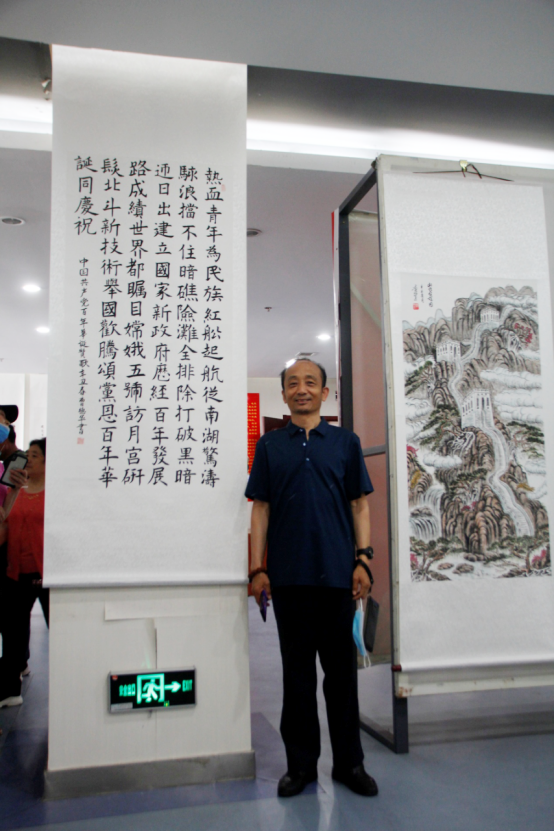 熱血青年為民族紅船起航從南湖驚濤
駭浪擋不住暗礁險灘全排除打破黑暗
迎日出建立國家新政府歷經百年發展
路成績世界都矚目嫦娥五號訪月宮研
髮北斗新技術舉國歡騰頌黨恩百年華
誕同慶祝
中国共产党百年華诞贺歌辛丑春
EXIT